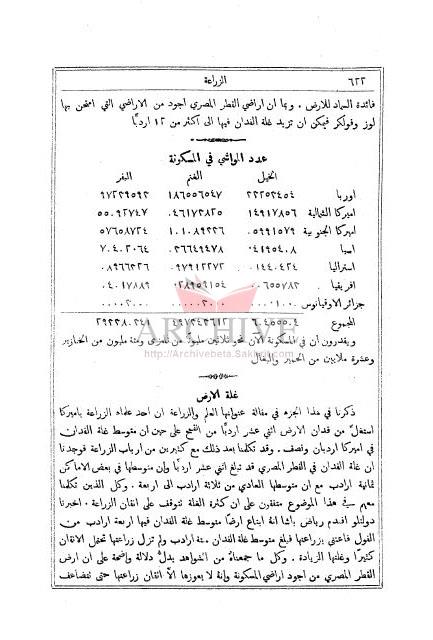 ٦٢٢ الزراعة
فائدة السماد للارض . وبما ان اراضي القطر المصري اجود من الاراضي التي امتحن بها
لوز وفولكر فيمكن ان تزيد غلة الفدان فيها الى اكثر من ١٢ اردبًا
عدد المواشي في المسكونة
الخيل الغنم البقر
اوربا ٢٢٢٥٢٤٥٤ ١٨٦٥٥٦٥٤٧ ٩٧٢٢٩٥٩٢
اميركا الشمالية ١٤٩١٧٨٥٦ ٠٤٦١٧٢٨٢٥ ٥٥٠٩٢٧٤٧
اميركا الجنوبية ٠٥٩٩١٥٧٩ ١٠١٠٨٩٢٢٦ ٥٧٦٥٨٧٢٤
اسيا ٠٤١٩٥٤٠٨ ٠٣٦٦٤٩٤٧٨ ٧٠٤٠٢٠٦٤
استراليا ٠١٤٤٠٤٢٤ ٠٩٧٩١٢٢٧٢ ٠٨٩٦٦٢٢٦
افريقيا ٠٠٦٥٥٧٨٢ ٠٢٨٩٥٩١٥٤ ٠٤٠١٧٨٨٩
جزائر الاوقيانوس
المجموع
ويقدرون ان في المسكونة الآن نحو ثلاثين مليونًا من المعزى ومئة مليون من الخنازير
وعشرة ملايين من الحمير والبغال
ARCHIVE
http://Archivebeta.Sakhrit.com
غلة الارض
ذكرنا في هذا الجزء في مقالة عنوانها العلم والزراعة ان احد علماء الزراعة باميركا
استغلّ من فدان الارض اثني عشر اردبًا من القمح على حين ان متوسط غلة الفدان
في اميركا اردبان ونصف . وقد تكلمنا بعد ذلك مع كثيرين من ارباب الزراعة فوجدنا
ان غلة الفدان في القطر المصري قد تبلغ اثني عشر اردبًا وان متوسطها في بعض الاماكن
ثمانية ارادب مع ان متوسطها العادي من ثلاثة ارادب الى اربعة . وكل الذين تكلمنا
معهم في هذا الموضوع متفقون على ان كثرة الغلة تتوقف على اتقان الزراعة . اخبرنا
دولتلو افندم رياض باشا انه ابتاع ارضًا متوسط غلة الفدان فيها اربعة ارادب من
الفول فاعتنى بزراعتها فبلغ متوسط غلة الفدان ستة ارادب ولم تزل زراعتها تحتمل الاتقان
كثيرًا وغلتها الزيادة . وكل ما جمعناه من الشواهد يدلّ دلالة واضحة على ان ارض
القطر المصري من اجود اراضي المسكونة وانه لا يعوزها الا اتقان زراعتها حتى تتضاعف